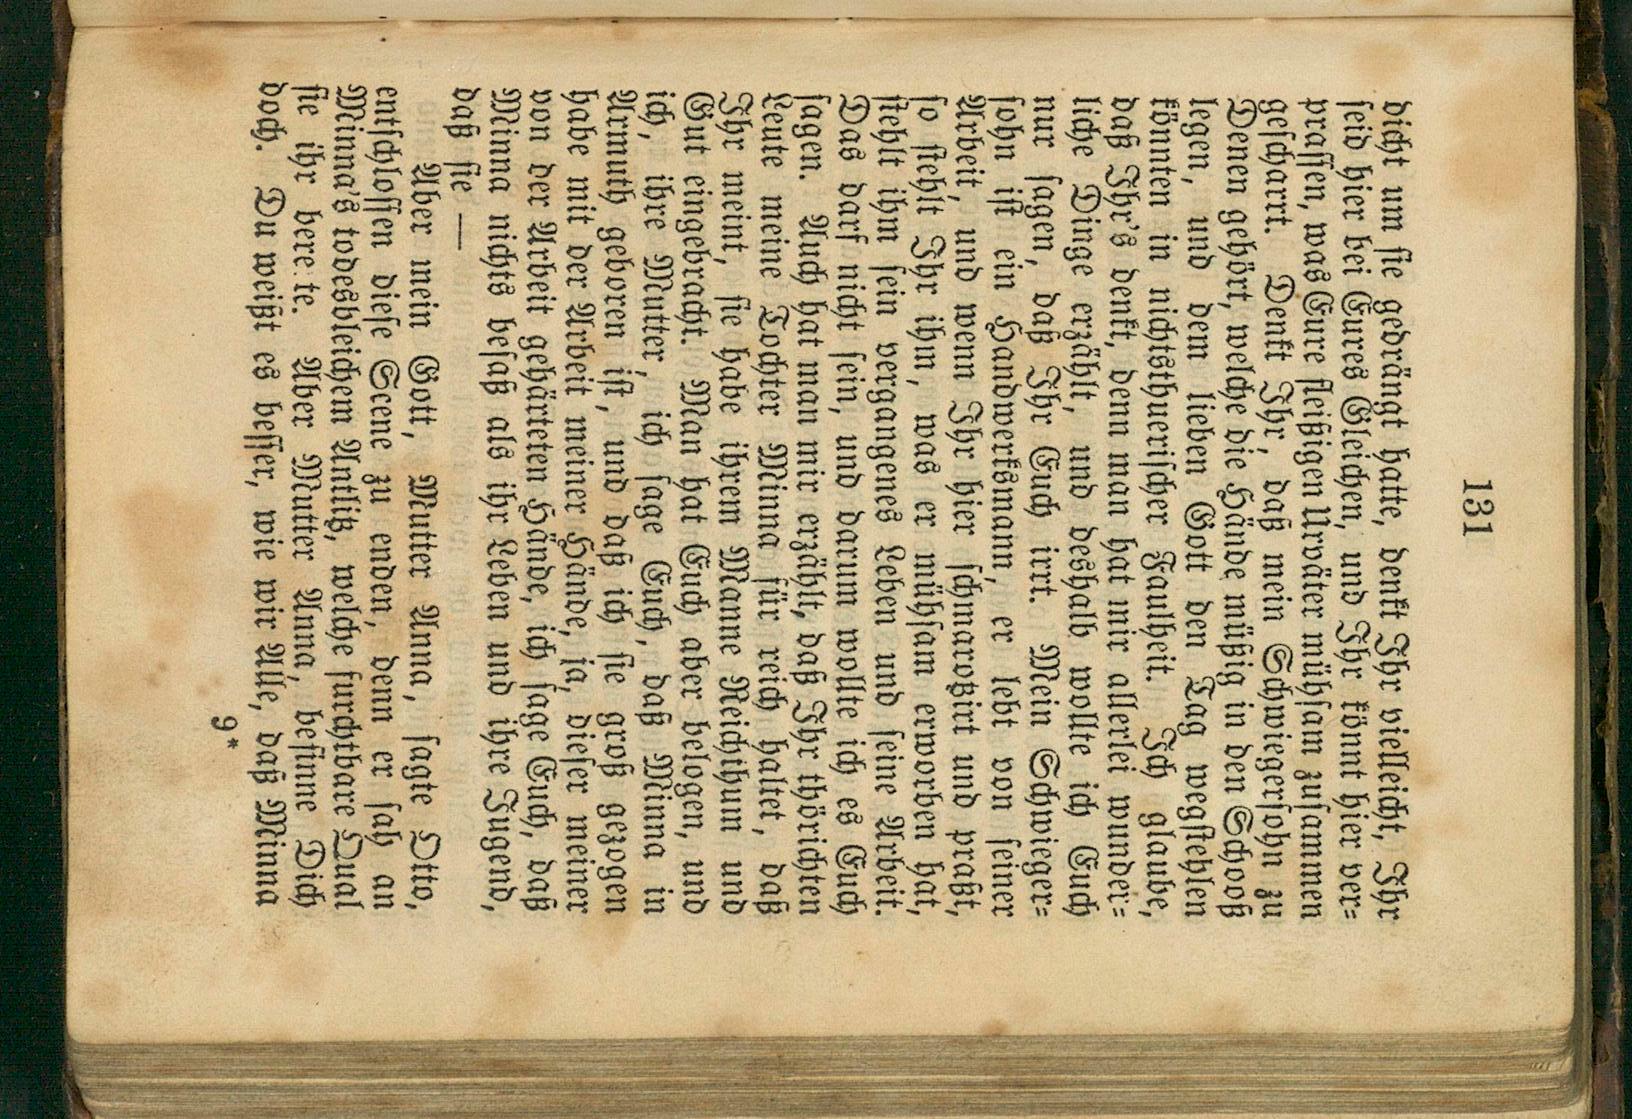 131
dicht um sie gedrängt hatte, denkt Ihr vielleicht, Ihr
seid hier bei Eures Gleichen, und Ihr könnt hier ver=
prassen, was Eure fleißigen Urväter mühsam zusammen
gescharrt. Denkt Ihr, daß mein Schwiegersohn zu
Denen gehört, welche die Hände müßig in den Schooß
legen, und dem lieben Gott den Tag wegstehlen
könnten in nichtsthuerischer Faulheit. Ich glaube,
daß Ihr's denkt, denn man hat mir allerlei wunder=
liche Dinge erzählt, und deshalb wollte ich Euch
nur sagen, daß Ihr Euch irrt. Mein Schwieger=
sohn ist ein Handwerksmann, er lebt von seiner
Arbeit, und wenn Ihr hier schmarotzirt und praßt,
so stehlt Ihr ihm, was er mühsam erworben hat,
stehlt ihm sein vergangenes Leben und seine Arbeit.
Das darf nicht sein, und darum wollte ich es Euch
sagen. Auch hat man mir erzählt, daß Ihr thörichten
Leute meine Tochter Minna für reich haltet, daß
Ihr meint, sie habe ihrem Manne Reichthum und
Gut eingebracht. Man hat Euch aber belogen, und
ich, ihre Mutter, ich sage Euch, daß Minna in
Armuth geboren ist, und daß ich sie groß gezogen
habe mit der Arbeit meiner Hände, ja, dieser meiner
von der Arbeit gehärteten Hände, ich sage Euch, daß
Minna nichts besaß als ihr Leben und ihre Tugend,
daß sie —
Aber mein Gott, Mutter Anna, sagte Otto,
entschlossen diese Scene zu enden, denn er sah an
Minna's todesbleichem Antlitz, welche furchtbare Qual
sie ihr bereite. Aber Mutter Anna, besinne Dich
doch. Du weißt es besser, wie wir Alle, daß Minna
9*